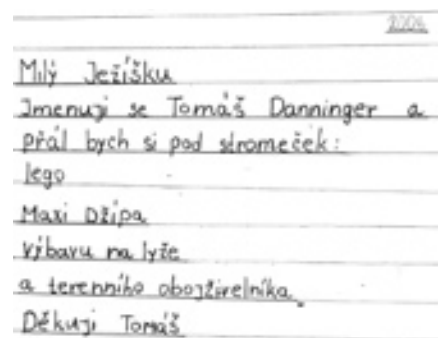 2004
Milý Ježíšku
Jmenuji se Tomáš Danninger a
přál bych si pod stromeček:
lego
Maxi Džípa
Výbavu na lyže
a terenního obojživelníka.
Děkuji Tomáš